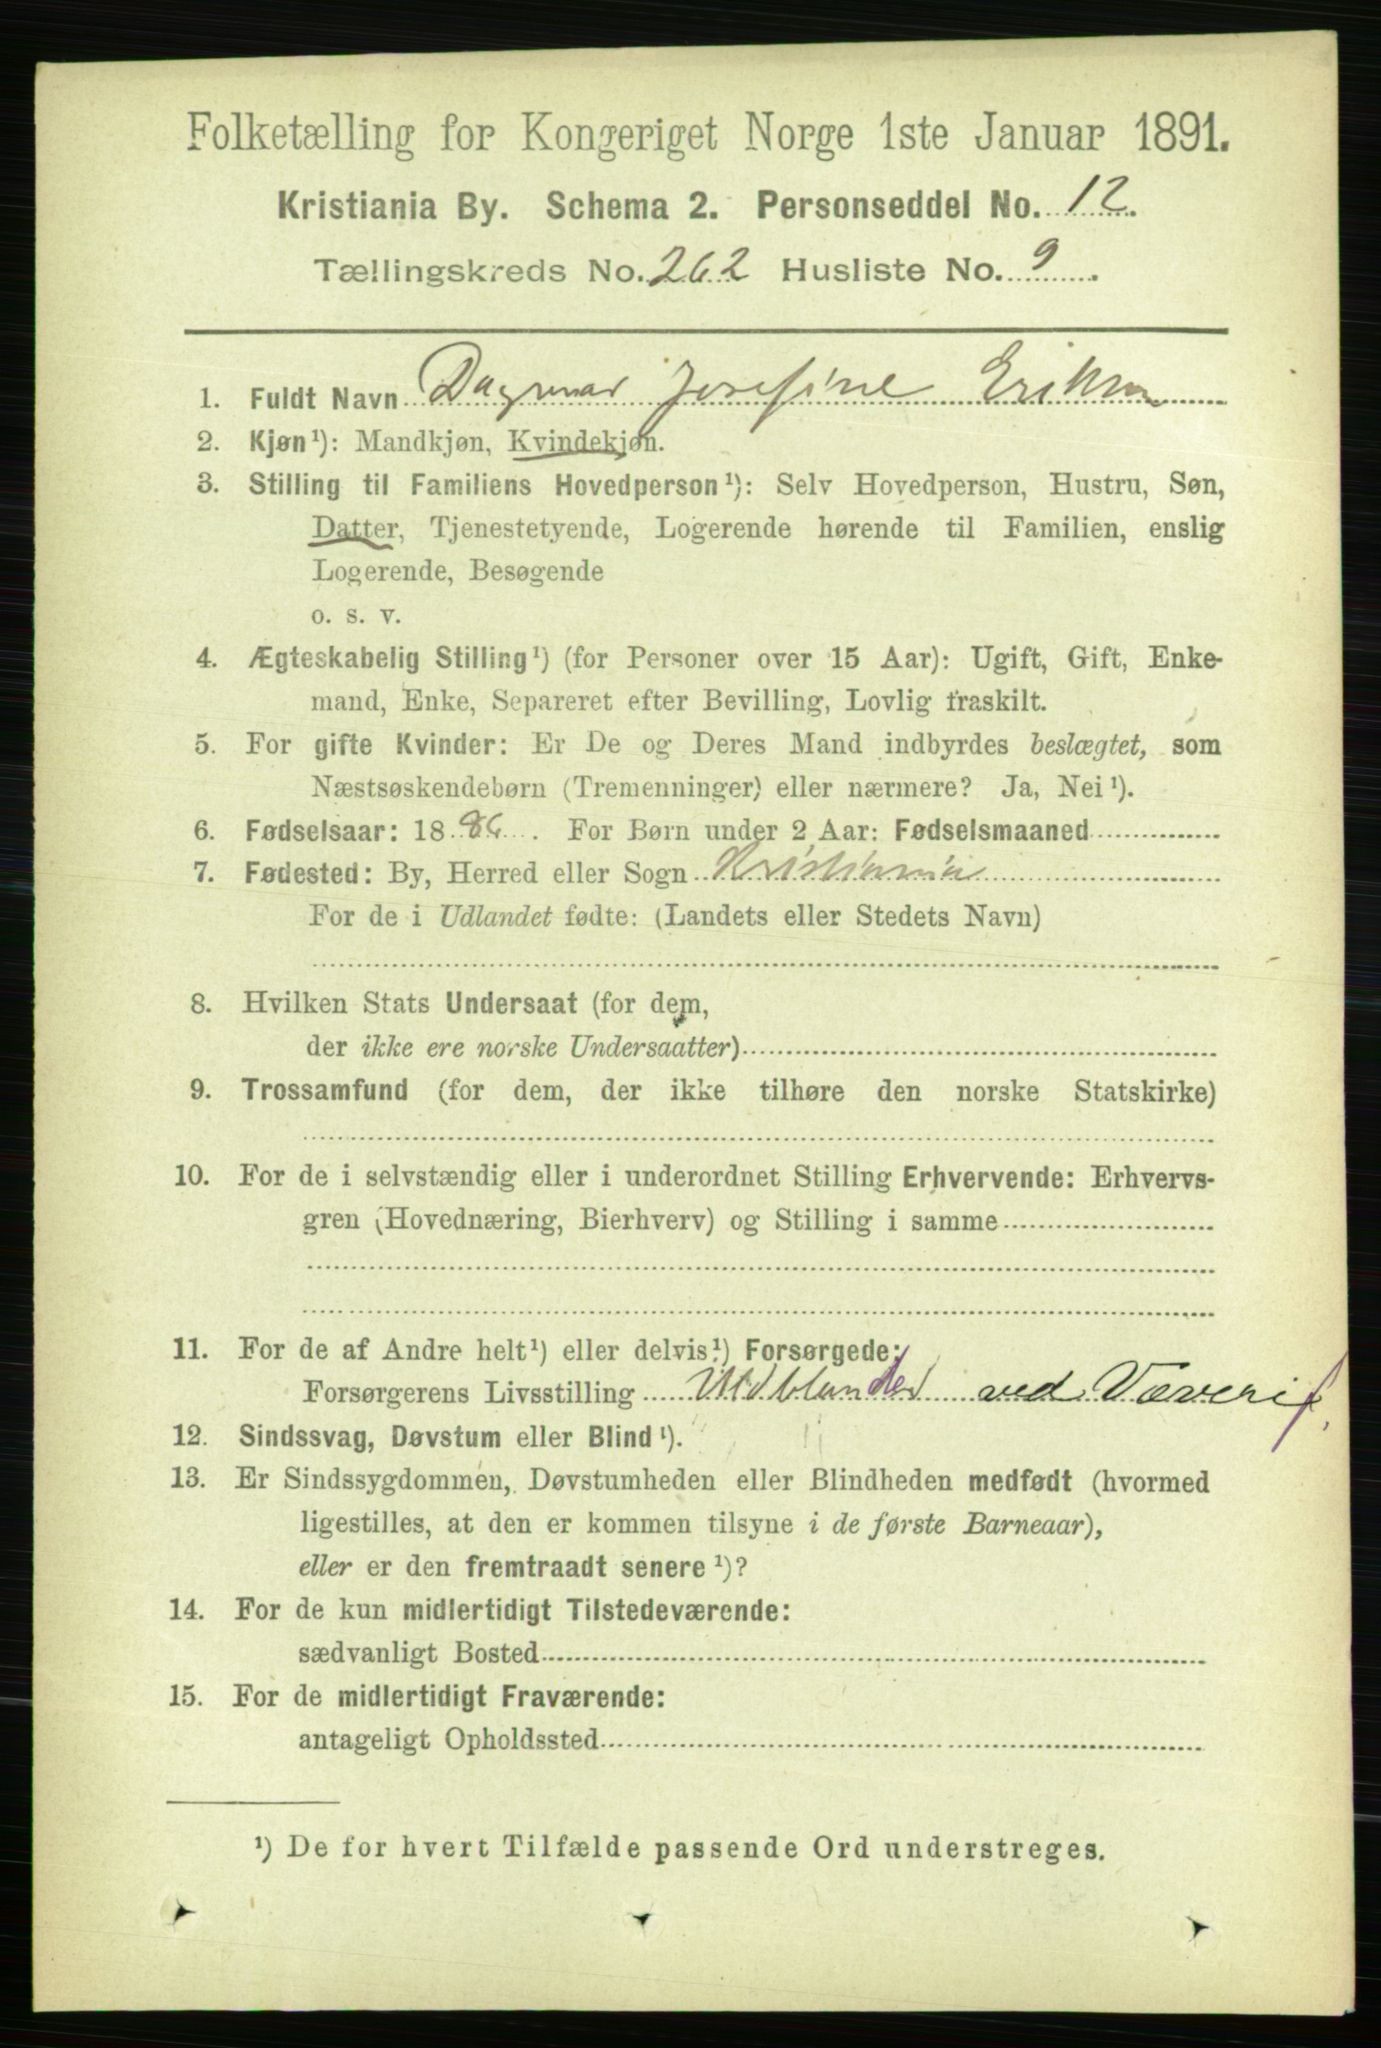 Folketælling for Kongeriget Norge 1ste Januar 1891.
Kristiania By. Schema 2. Personseddel No. 12.
Tællingskreds No. 262 Husliste No. 9.
1. Fuldt Navn Dagmar Josefine Eriksen
2. Kjøn¹): Mandkjøn, Kvindekjøn.
3. Stilling til Familiens Hovedperson¹): Selv Hovedperson, Hustru, Søn,
Datter, Tjenestetyende, Logerende hørende til Familien, enslig
Logerende, Besøgende
o. s. v.
4. Ægteskabelig Stilling¹) (for Personer over 15 Aar): Ugift, Gift, Enke-
mand, Enke, Separeret efter Bevilling, Lovlig fraskilt.
5. For gifte Kvinder: Er De og Deres Mand indbyrdes beslægtet, som
Næstsøskendebørn (Tremenninger) eller nærmere? Ja, Nei¹).
6. Fødselsaar: 1886. For Børn under 2 Aar: Fødselsmaaned
7. Fødested: By, Herred eller Sogn Kristiania
For de i Udlandet fødte: (Landets eller Stedets Navn)
8. Hvilken Stats Undersaat (for dem,
der ikke ere norske Undersaatter)
9. Trossamfund (for dem, der ikke tilhøre den norske Statskirke)
10. For de i selvstændig eller i underordnet Stilling Erhvervende: Erhvervs-
gren (Hovednæring, Bierhverv) og Stilling i samme
11. For de af Andre helt¹) eller delvis¹) Forsørgede:
Forsørgerens Livsstilling Uldblander ved Væverif.
12. Sindssvag, Døvstum eller Blind¹).
13. Er Sindssygdommen, Døvstumheden eller Blindheden medfødt (hvormed
ligestilles, at den er kommen tilsyne i de første Barneaar),
eller er den fremtraadt senere¹)?
14. For de kun midlertidigt Tilstedeværende:
sædvanligt Bosted
15. For de midlertidigt Fraværende:
antageligt Opholdssted
¹) De for hvert Tilfælde passende Ord understreges.